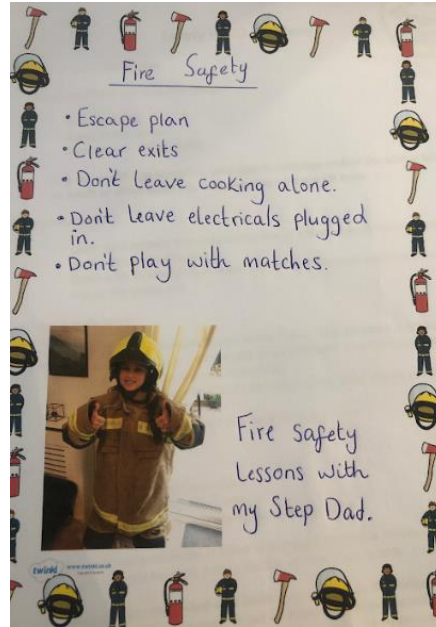 Fire Safety
• Escape plan
• Clear exits
• Don't Leave cooking alone.
• Don't Leave electricals plugged
in.
• Don't play with matches.
Fire Safety
Lessons with
my Step Dad.
twinkl www.twinkl.co.uk